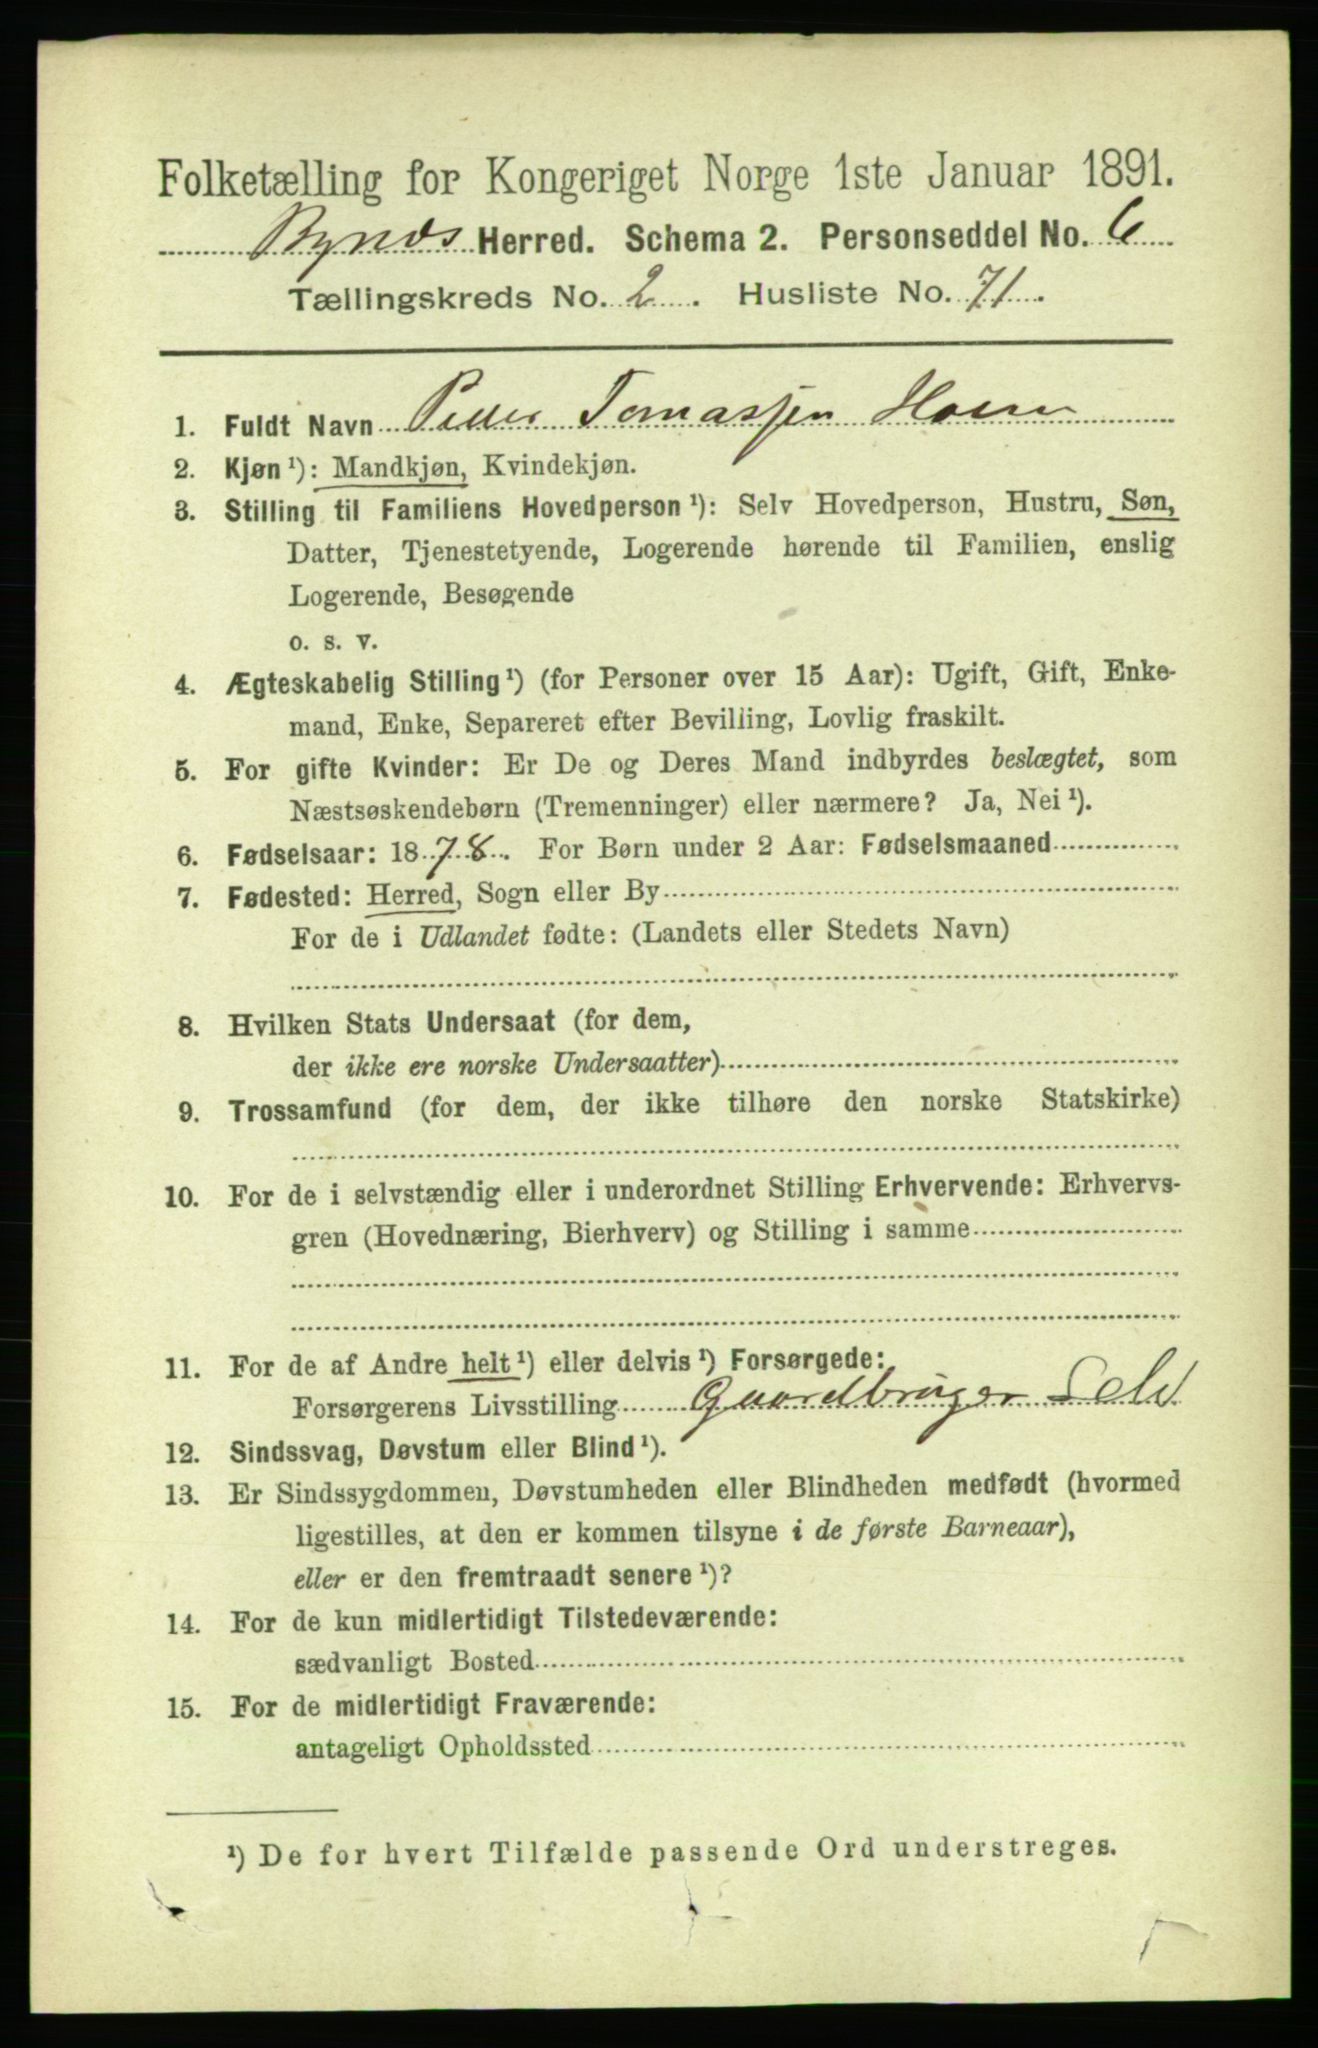 Folketælling for Kongeriget Norge 1ste Januar 1891.
Bynæs Herred. Schema 2. Personseddel No. 6
Tællingskreds No. 2. Husliste No. 71.
1. Fuldt Navn Peder Tomassen
2. Kjøn ¹): Mandkjøn, Kvindekjøn.
3. Stilling til Familiens Hovedperson ¹): Selv Hovedperson, Hustru, Søn,
Datter, Tjenestetyende, Logerende hørende til Familien, enslig
Logerende, Besøgende
o. s. v.
4. Ægteskabelig Stilling ¹) (for Personer over 15 Aar): Ugift, Gift, Enke-
mand, Enke, Separeret efter Bevilling, Lovlig fraskilt.
5. For gifte Kvinder: Er De og Deres Mand indbyrdes beslægtet, som
Næstsøskendebørn (Tremenninger) eller nærmere? Ja, Nei ¹).
6. Fødselsaar: 1878. For Børn under 2 Aar: Fødselsmaaned
7. Fødested: Herred, Sogn eller By
For de i Udlandet fødte: (Landets eller Stedets Navn)
8. Hvilken Stats Undersaat (for dem,
der ikke ere norske Undersaatter)
9. Trossamfund (for dem, der ikke tilhøre den norske Statskirke)
10. For de i selvstændig eller i underordnet Stilling Erhvervende: Erhvervs-
gren (Hovednæring, Bierhverv) og Stilling i samme
11. For de af Andre helt ¹) eller delvis ¹) Forsørgede:
Forsørgerens Livsstilling Gaardbruger Selv
12. Sindssvag, Døvstum eller Blind ¹).
13. Er Sindssygdommen, Døvstumheden eller Blindheden medfødt (hvormed
ligestilles, at den er kommen tilsyne i de første Barneaar),
eller er den fremtraadt senere ¹)?
14. For de kun midlertidigt Tilstedeværende:
sædvanligt Bosted
15. For de midlertidigt Fraværende:
antageligt Opholdssted
¹) De for hvert Tilfælde passende Ord understreges.